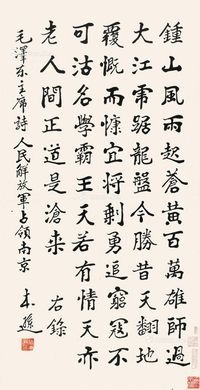 鍾山風雨起蒼黃百萬雄師過
大江虎踞龍盤今勝昔天翻地
覆慨而慷宜將剩勇追窮寇不
可沽名學霸王天若有情天亦
老人間正道是滄桑 右錄
毛澤東主席詩人民解放軍占領南京